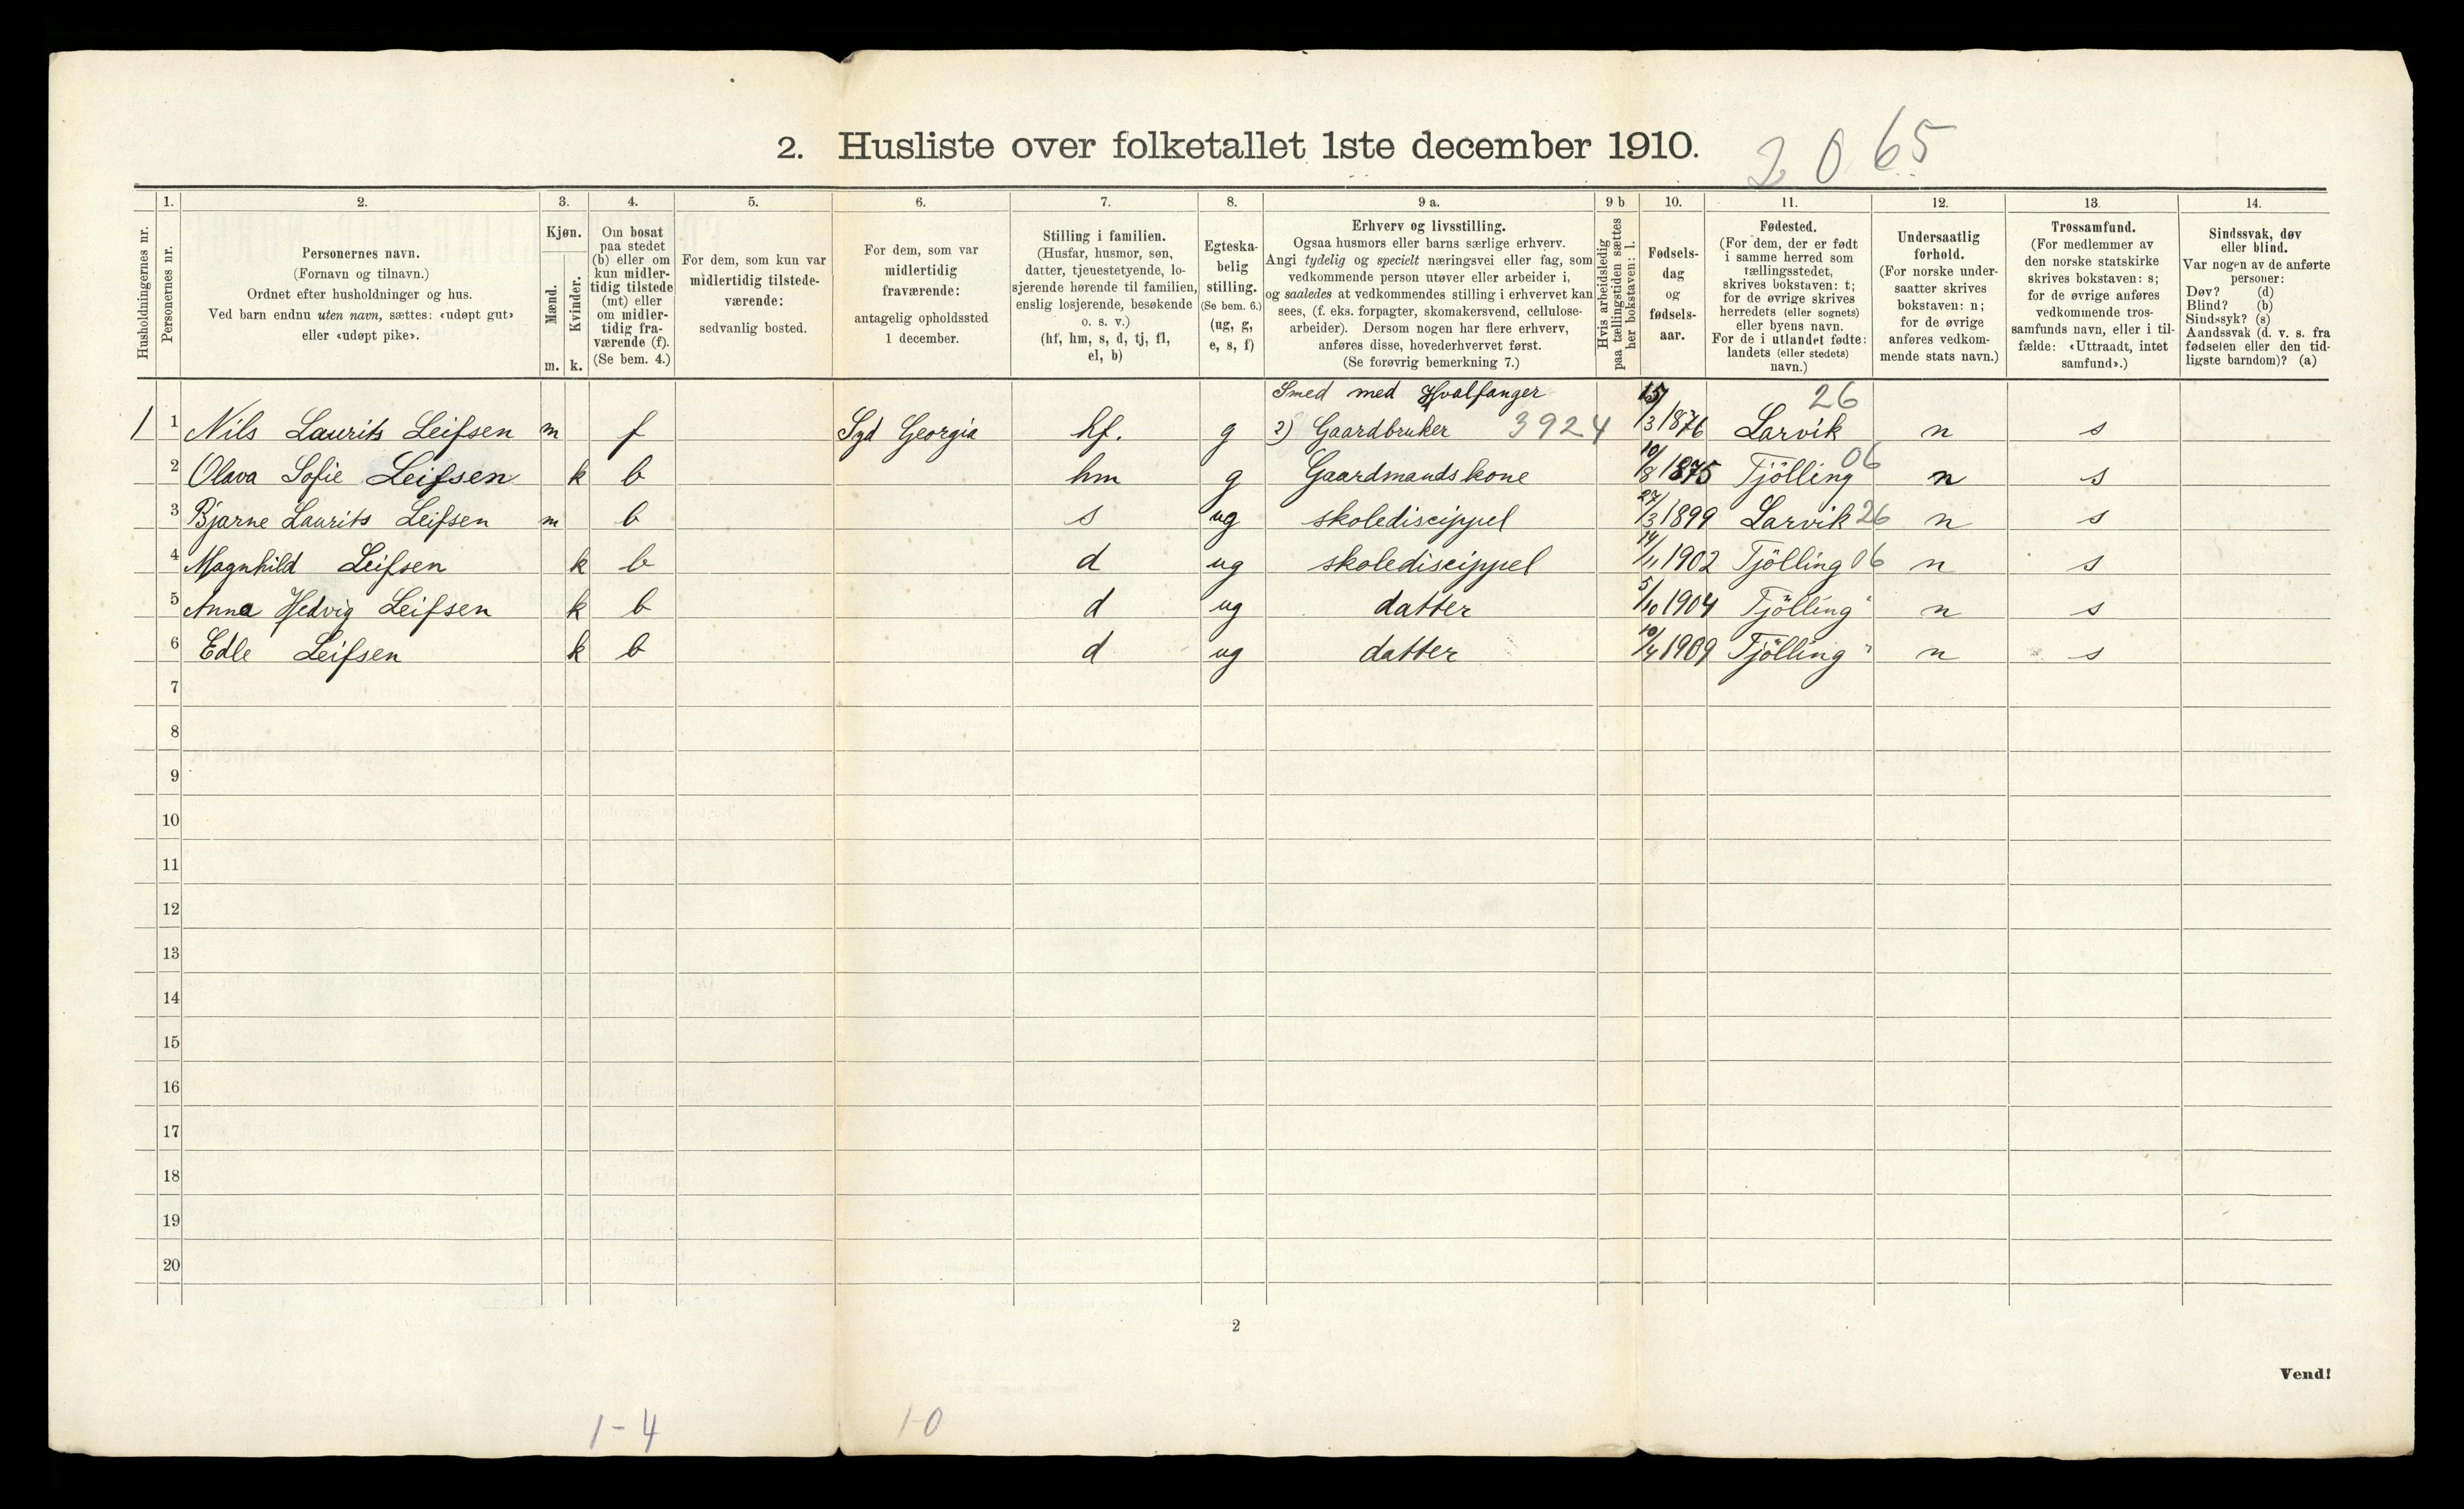 2. Husliste over folketallet 1ste december 1910.
2 0 65
1. 2. 3. 4. 5. 6. 7. 8. 9 a. 9 b 10. 11. 12. 13. 14.
Husholdningernes nr.
Personernes nr.
Personernes navn.
(Fornavn og tilnavn.)
Ordnet efter husholdninger og hus.
Ved barn endnu uten navn, sættes: «udøpt gut»
eller «udøpt pike».
Kjøn.
Mænd.
Kvinder.
m. k.
Om bosat
paa stedet
(b) eller om
kun midler-
tidig tilstede
(mt) eller
om midler-
tidig fra-
værende (f).
(Se bem. 4.)
For dem, som kun var
midlertidig tilstede-
værende:
sedvanlig bosted.
For dem, som var
midlertidig
fraværende:
antagelig opholdssted
1 december.
Stilling i familien.
(Husfar, husmor, søn,
datter, tjenestetyende, lo-
sjerende hørende til familien,
enslig losjerende, besøkende
o. s. v.)
(hf, hm, s, d, tj, fl,
el, b)
Egteska-
belig
stilling.
(Se bem. 6.)
(ug, g,
e, s, f)
Erhverv og livsstilling.
Ogsaa husmors eller barns særlige erhverv.
Angi tydelig og specielt næringsvei eller fag, som
vedkommende person utøver eller arbeider i,
og saaledes at vedkommendes stilling i erhvervet kan
sees, (f. eks. forpagter, skomakersvend, cellulose-
arbeider). Dersom nogen har flere erhverv,
anføres disse, hovederhvervet først.
(Se forøvrig bemerkning 7.)
Hvis arbeidsledig
paa tællingstiden sættes
her bokstaven: l.
Fødsels-
dag
og
fødsels-
aar.
Fødested.
(For dem, der er født
i samme herred som
tællingsstedet,
skrives bokstaven: t;
for de øvrige skrives
herredets (eller sognets)
eller byens navn.
For de i utlandet fødte:
landets (eller stedets)
navn.)
Undersaatlig
forhold.
(For norske under-
saatter skrives
bokstaven: n;
for de øvrige
anføres vedkom-
mende stats navn.)
Trossamfund.
(For medlemmer av
den norske statskirke
skrives bokstaven: s;
for de øvrige anføres
vedkommende tros-
samfunds navn, eller i til-
fælde: «Uttraadt, intet
samfund».)
Sindssvak, døv
eller blind.
Var nogen av de anførte
personer:
Døv? (d)
Blind? (b)
Sindssyk? (s)
Aandssvak (d. v. s. fra
fødselen eller den tid-
ligste barndom)? (a)
Smed med Hvalfanger 26
1 1 Nils Laurits Leifsen m f Syd Georgia hf. g 2) Gaardbruker 3924 15/3 1876 Larvik n s
2 Olava Sofie Leifsen k b hm g Gaardmandskone 10/8 1875 Tjölling 06 n s
3 Bjarne Laurits Leifsen m b s ug skolediscippel 27/3 1899 Larvik 26 n s
4 Magnhild Leifsen k b d ug skolediscippel 14/11 1902 Tjölling 06 n s
5 Anna Hedvig Leifsen k b d ug datter 5/10 1904 Tjölling " n s
6 Edle Leifsen k b d ug datter 10/4 1909 Tjölling " n s
7
8
9
10
11
12
13
14
15
16
17
18
19
20
2
Vend!
1-4 1-0